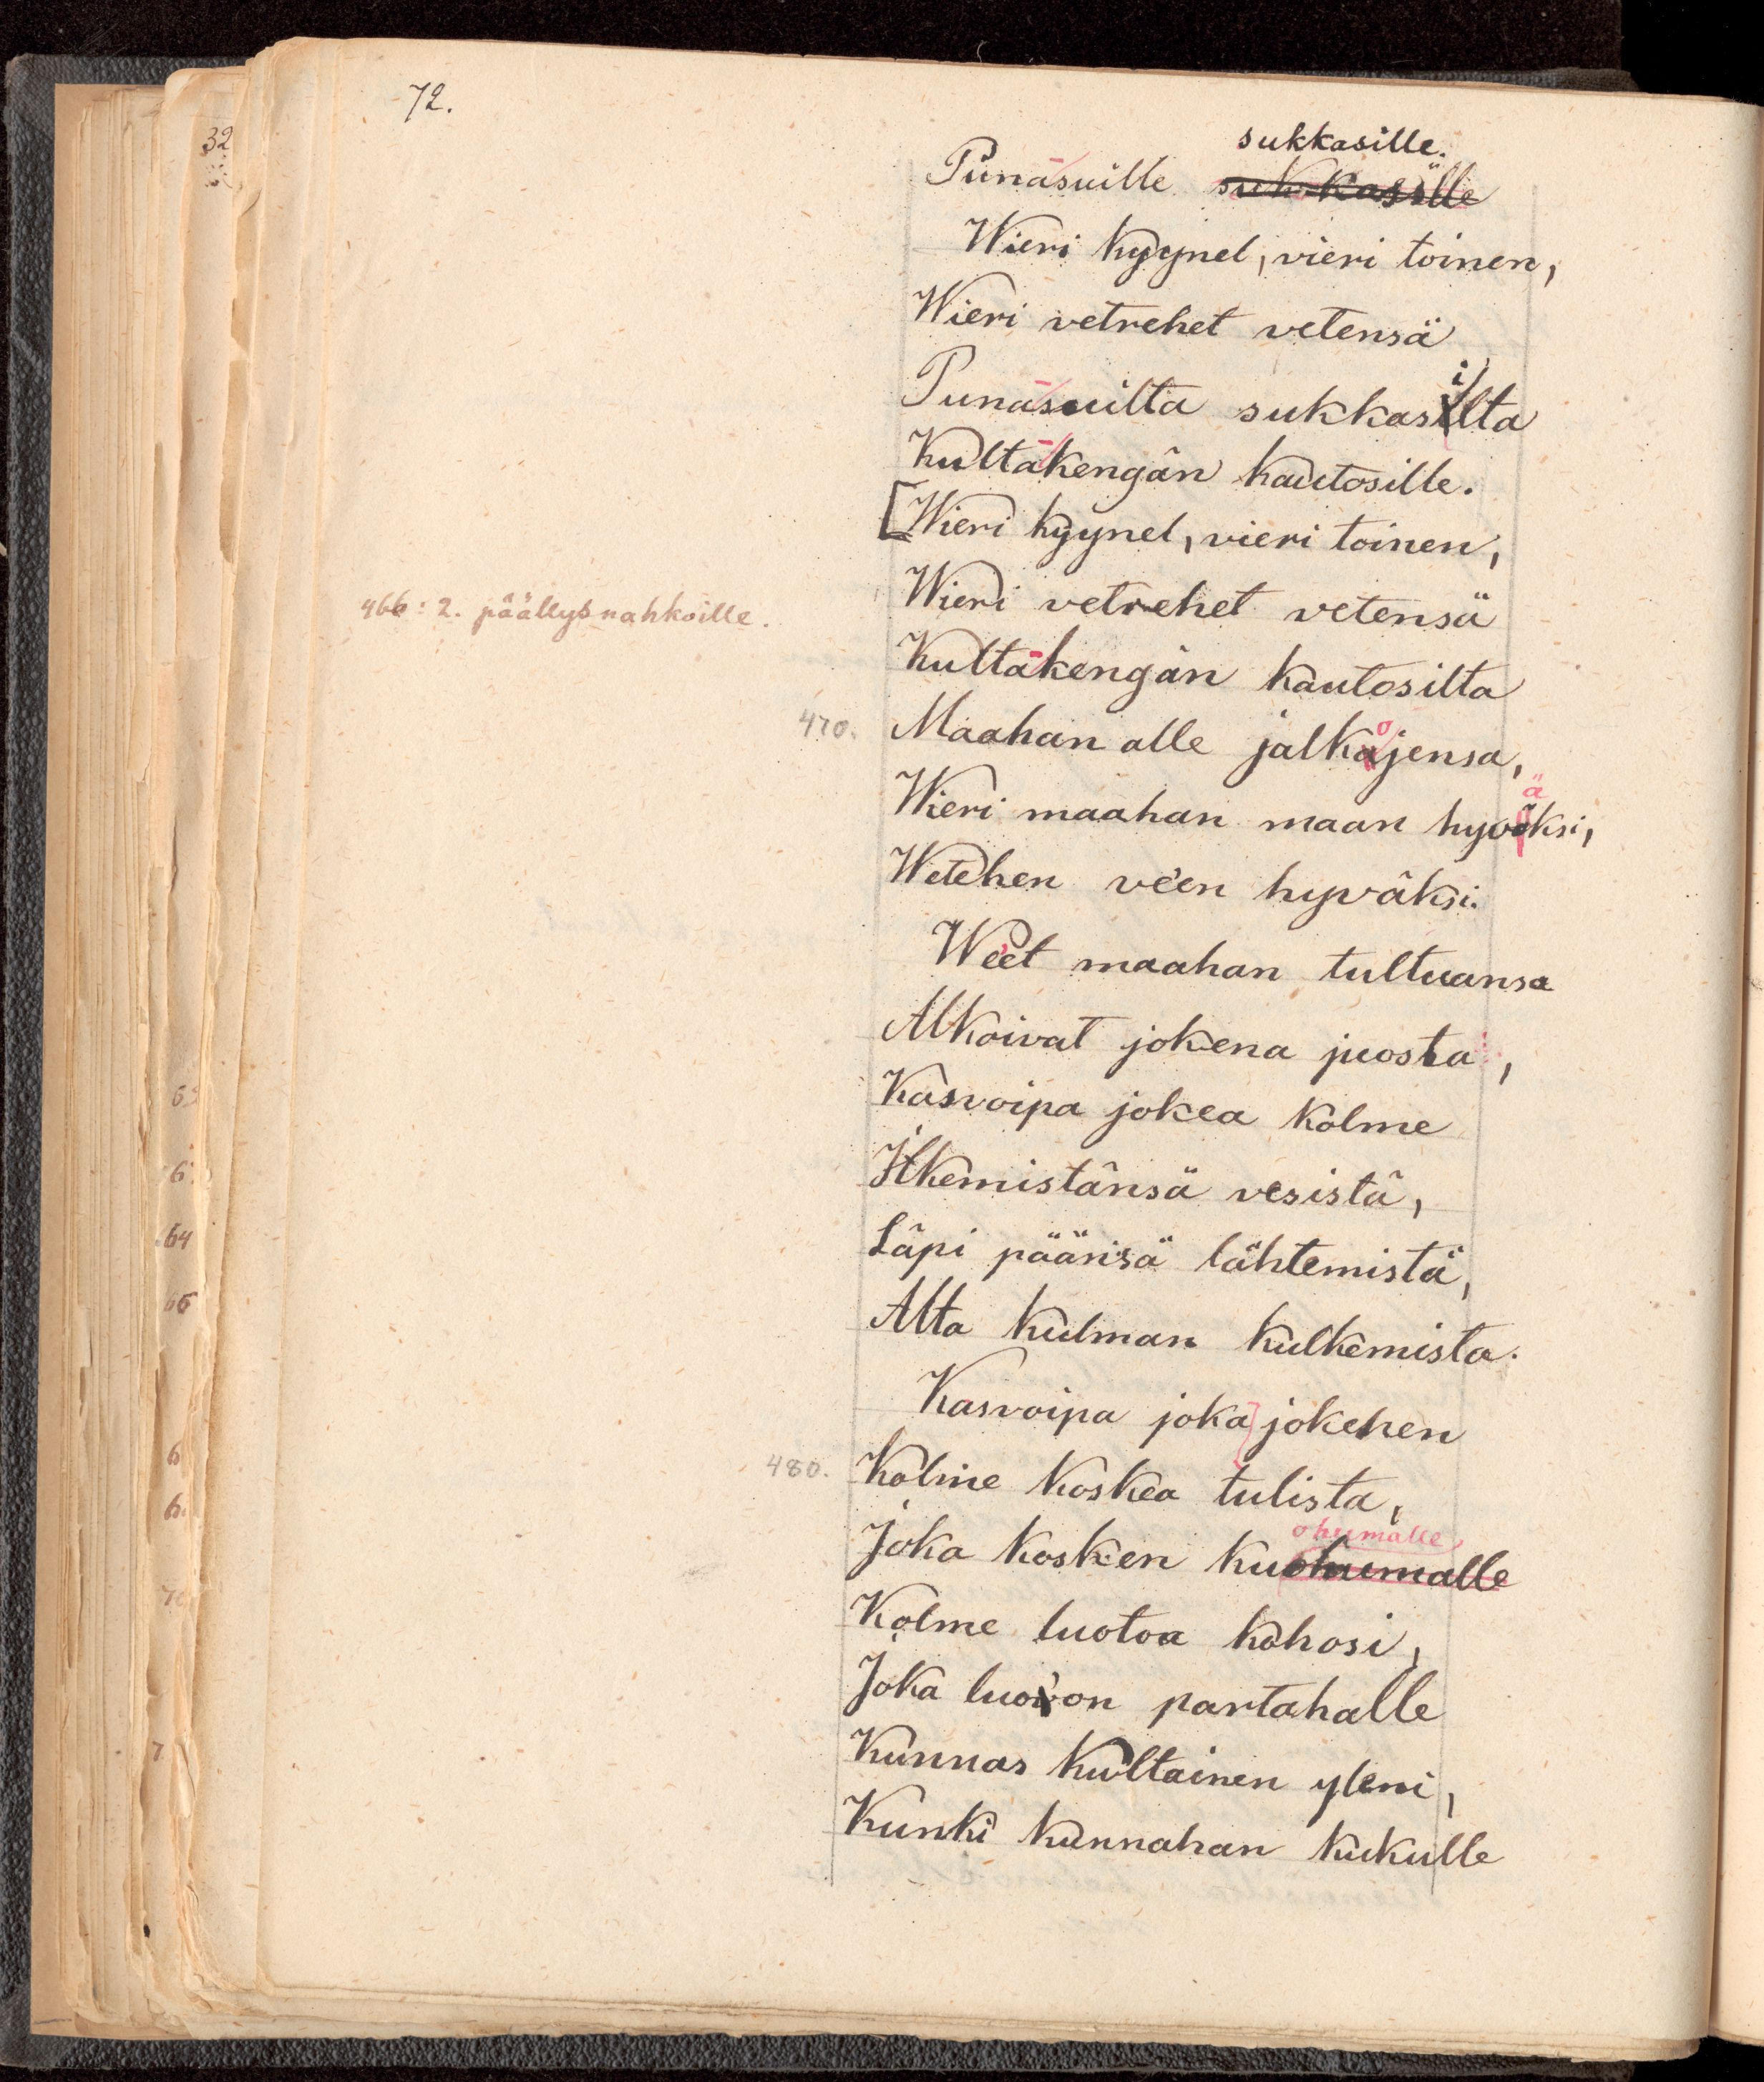 72.
32
sukkasille.
Punasuille sukkasille
Wieri kyynel, vieri toinen,
Wieri vetrehet vetensä
Punasuilta sukkasilta
Kultakengän kautosille.
[Wieri kyynel, vieri toinen,
466: 2. päällysnahkoille.
Wieri vetrehet vetensä
Kultakengän kautosilta
470. Maahan alle jalkojensa,
Wieri maahan maan hyväksi,
Wetehen ve'en hyväksi.
We'et maahan tultuansa
Alkoivat jokena juosta,
Kasvoipa jokea kolme
Itkemistänsä vesistä,
Läpi päänsä lähtemistä,
Alta kulman kulkemista.
Kasvoipa joka jokehen
480. Kolme koskea tulista,
ohumalle
Joka kosken kuohumalle
Kolme luotoa kohosi,
Joka luo'on partahalle
Kunnas kultainen yleni,
Kunki kunnahan kukulle
64